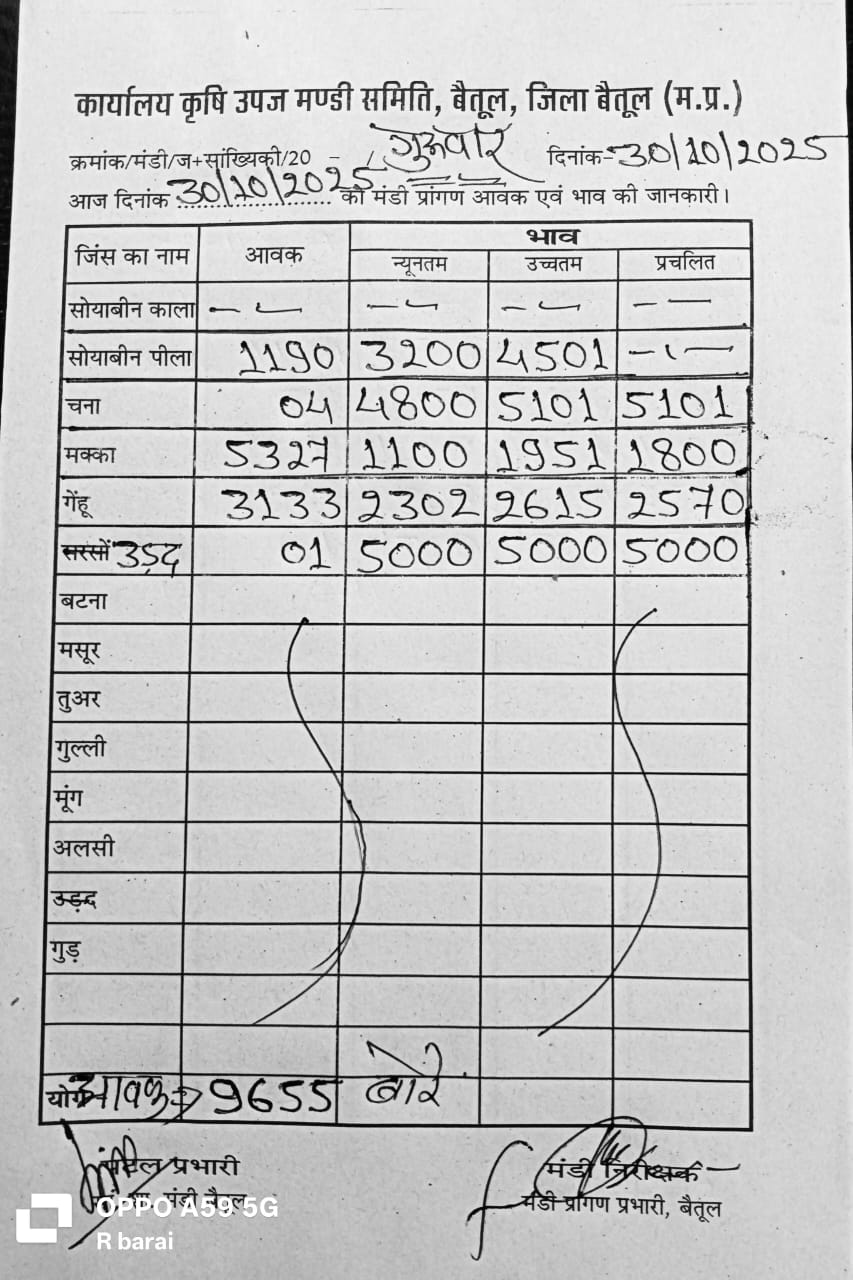 कार्यालय कृषि उपज मण्डी समिति, बैतूल, जिला बैतूल (म.प्र.)
क्रमांक/मंडी/ज+सांख्यिकी/20 - / गुरूवार दिनांक-30/10/2025
आज दिनांक 30/10/2025 को मंडी प्रांगण आवक एवं भाव की जानकारी।
जिंस का नाम आवक भाव
न्यूनतम उच्चतम प्रचलित
सोयाबीन काला -- -- -- --
सोयाबीन पीला 1190 3200 4501 -·-
चना 04 4800 5101 5101
मक्का 5327 1100 1951 1800
गेंहू 3133 2302 2615 2570
सरसों उड़द 01 5000 5000 5000
बटना
मसूर
तुअर
गुल्ली
मूंग
अलसी
उड़द
गुड़
योग आवक => 9655 बोरे
प्रभारी मंडी निरीक्षक
मंडी बैतूल मंडी प्रांगण प्रभारी, बैतूल
OPPO A59 5G
R barai